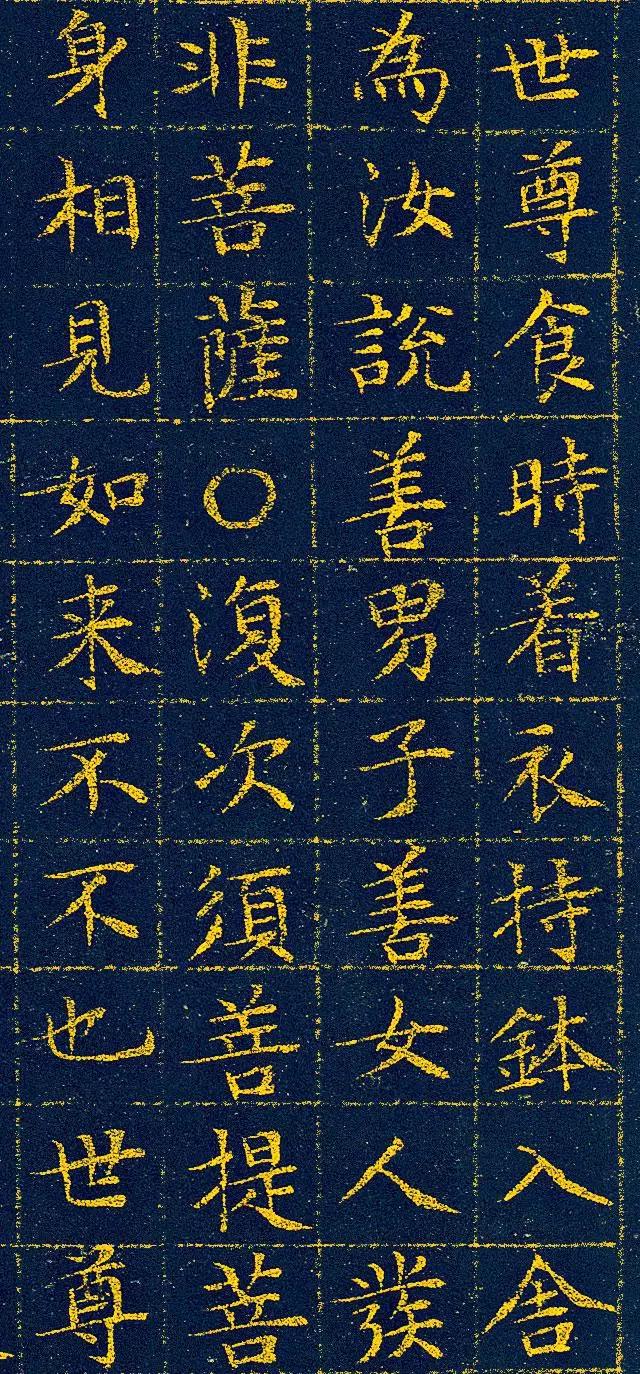 世尊食時着衣持鉢入舎
為汝說善男子善女人發
非菩薩○復次須善提菩
身相見如来不不也世尊